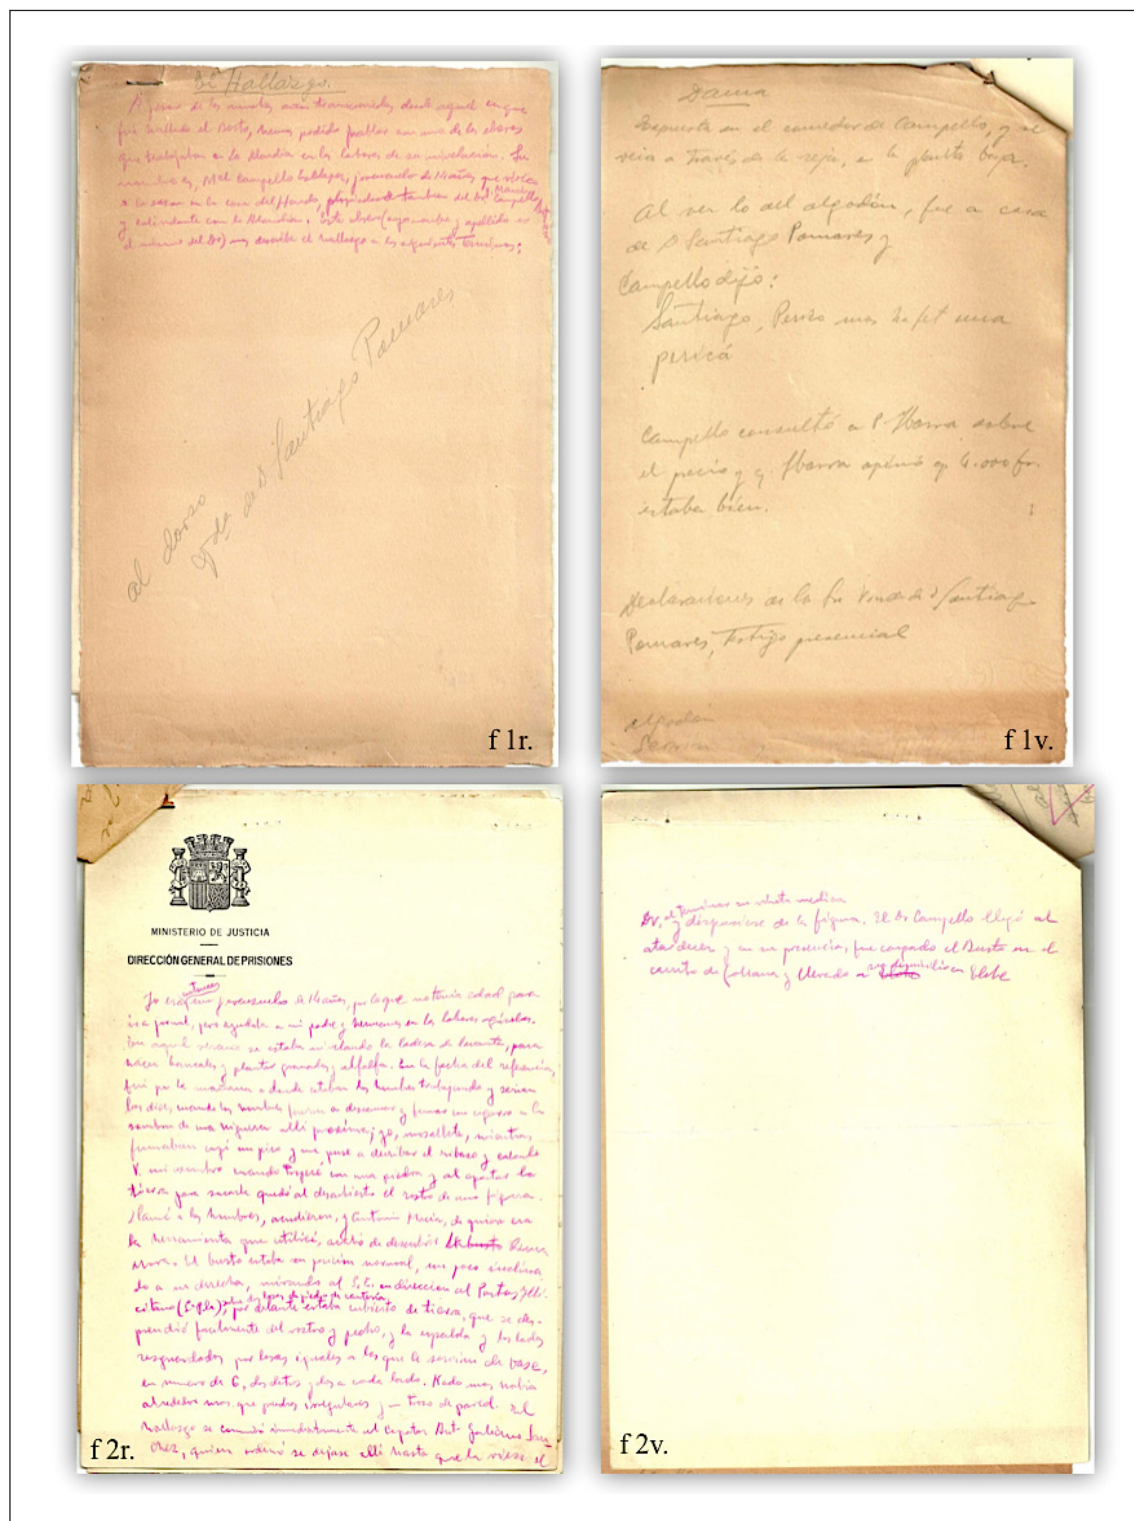 El Hallazgo.
A pesar de los muchos años transcurridos desde aquel en que
fué hallado el Busto, hemos podido hablar con uno de los obreros
que trabajaban en la Alcudia en las labores de su nivelación. Su
nombre es, Mel Campello
a la sazon en la casa del Hondo, propiedad tambien del Dr. Campello,
y colindante con la Alcudia. Este obrero (cuyo nombre y apellido es
el mismo del Dr) nos describe el hallazgo en los siguientes terminos:
al dorso
Vda de D Santiago Pomares
f 1r.
Dama
Expuesta en el comedor de Campello, y se
veia a través de la reja, en la planta baja.
Al ver lo del algodón, fue a casa
de D Santiago Pomares y
Campello dijo:
Santiago, Perico mos ha fet una
pericá
Campello consultó a P. Ibarra sobre
el precio y q. Ibarra opinó q. 4.000 fr.
estaba bien.
Declaraciones de la Sra Viuda de D Santiago
Pomares, Testigo presencial
algodón
f 1v.
MINISTERIO DE JUSTICIA
DIRECCIÓN GENERAL DE PRISIONES
Yo era entonces un jovenzuelo de 14 años, por lo que no tenia edad para
ir a jornal, pero ayudaba a mi padre y hermanos en las labores agricolas.
En aquel verano se estaba nivelando la ladera de levante, para
hacer bancales y plantar granados y alfalfa. En la fecha del referencia,
fui por la mañana a donde estaban los hombres trabajando y serian
las diez, cuando los hombres fueron a descansar y fumar un cigarro a la
sombra de una higuera alli proxima; yo, mozalbete, mientras
fumaban cogi un pico y me puse a derribar el ribazo y calcule
V. mi asombro cuando tropecé con una piedra y al apartar la
tierra para sacarla quedó al descubierto el rostro de una figura.
Llamé a los hombres, acudieron, y Antonio Maciá, de quien era
la herramienta que utilicé, acabó de descubrir la Reina
Mora. El busto estaba en posición normal, un poco inclina
do a su derecha, mirando al S.E. en direccion al Portus Illi-
citano (Sta Pola) sobre dos losas de piedra de canteria, por delante estaba cubierto de tierra, que se des-
prendió facilmente del rostro y pecho, y la espalda y los lados
resguardados por losas iguales a las que le servian de base,
en numero de 6, dos detras y dos a cada lado. Nada mas habia
alrededor mas que piedras irregulares y un trozo de pared. El
hallazgo se comunicó inmediatamente al Capataz Ant. Galiano San
chez, quien ordenó se dejase alli hasta que la viese el
f 2r.
Dr, al terminar su visita medica
y dispusiese de la figura. El Dr Campello llegó al
atardecer y en su presencia, fue cargado el Busto en el
carrito de Galiana y llevado a su domicilio en Elche
f 2v.